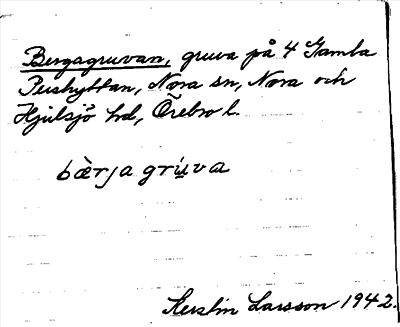 Bergagruvan, gruva på 4 Gamla
Pershyttan, Nora sn, Nora och
Hjulsjö hd, Örebro l.
bærja gru̱va
Kerstin Larsson 1942.